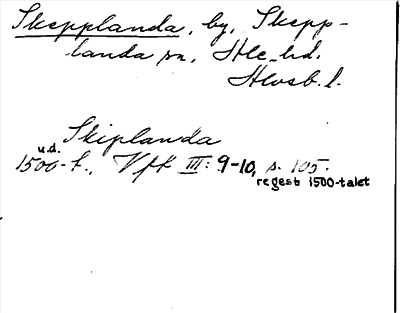 Skepplanda, by, Skepp-
landa sn, Ale hd.
Älvsb. l.
Skiplanda
u.d.
1500-t., Vfk III: 9-10, s. 105.
regest 1500-talet